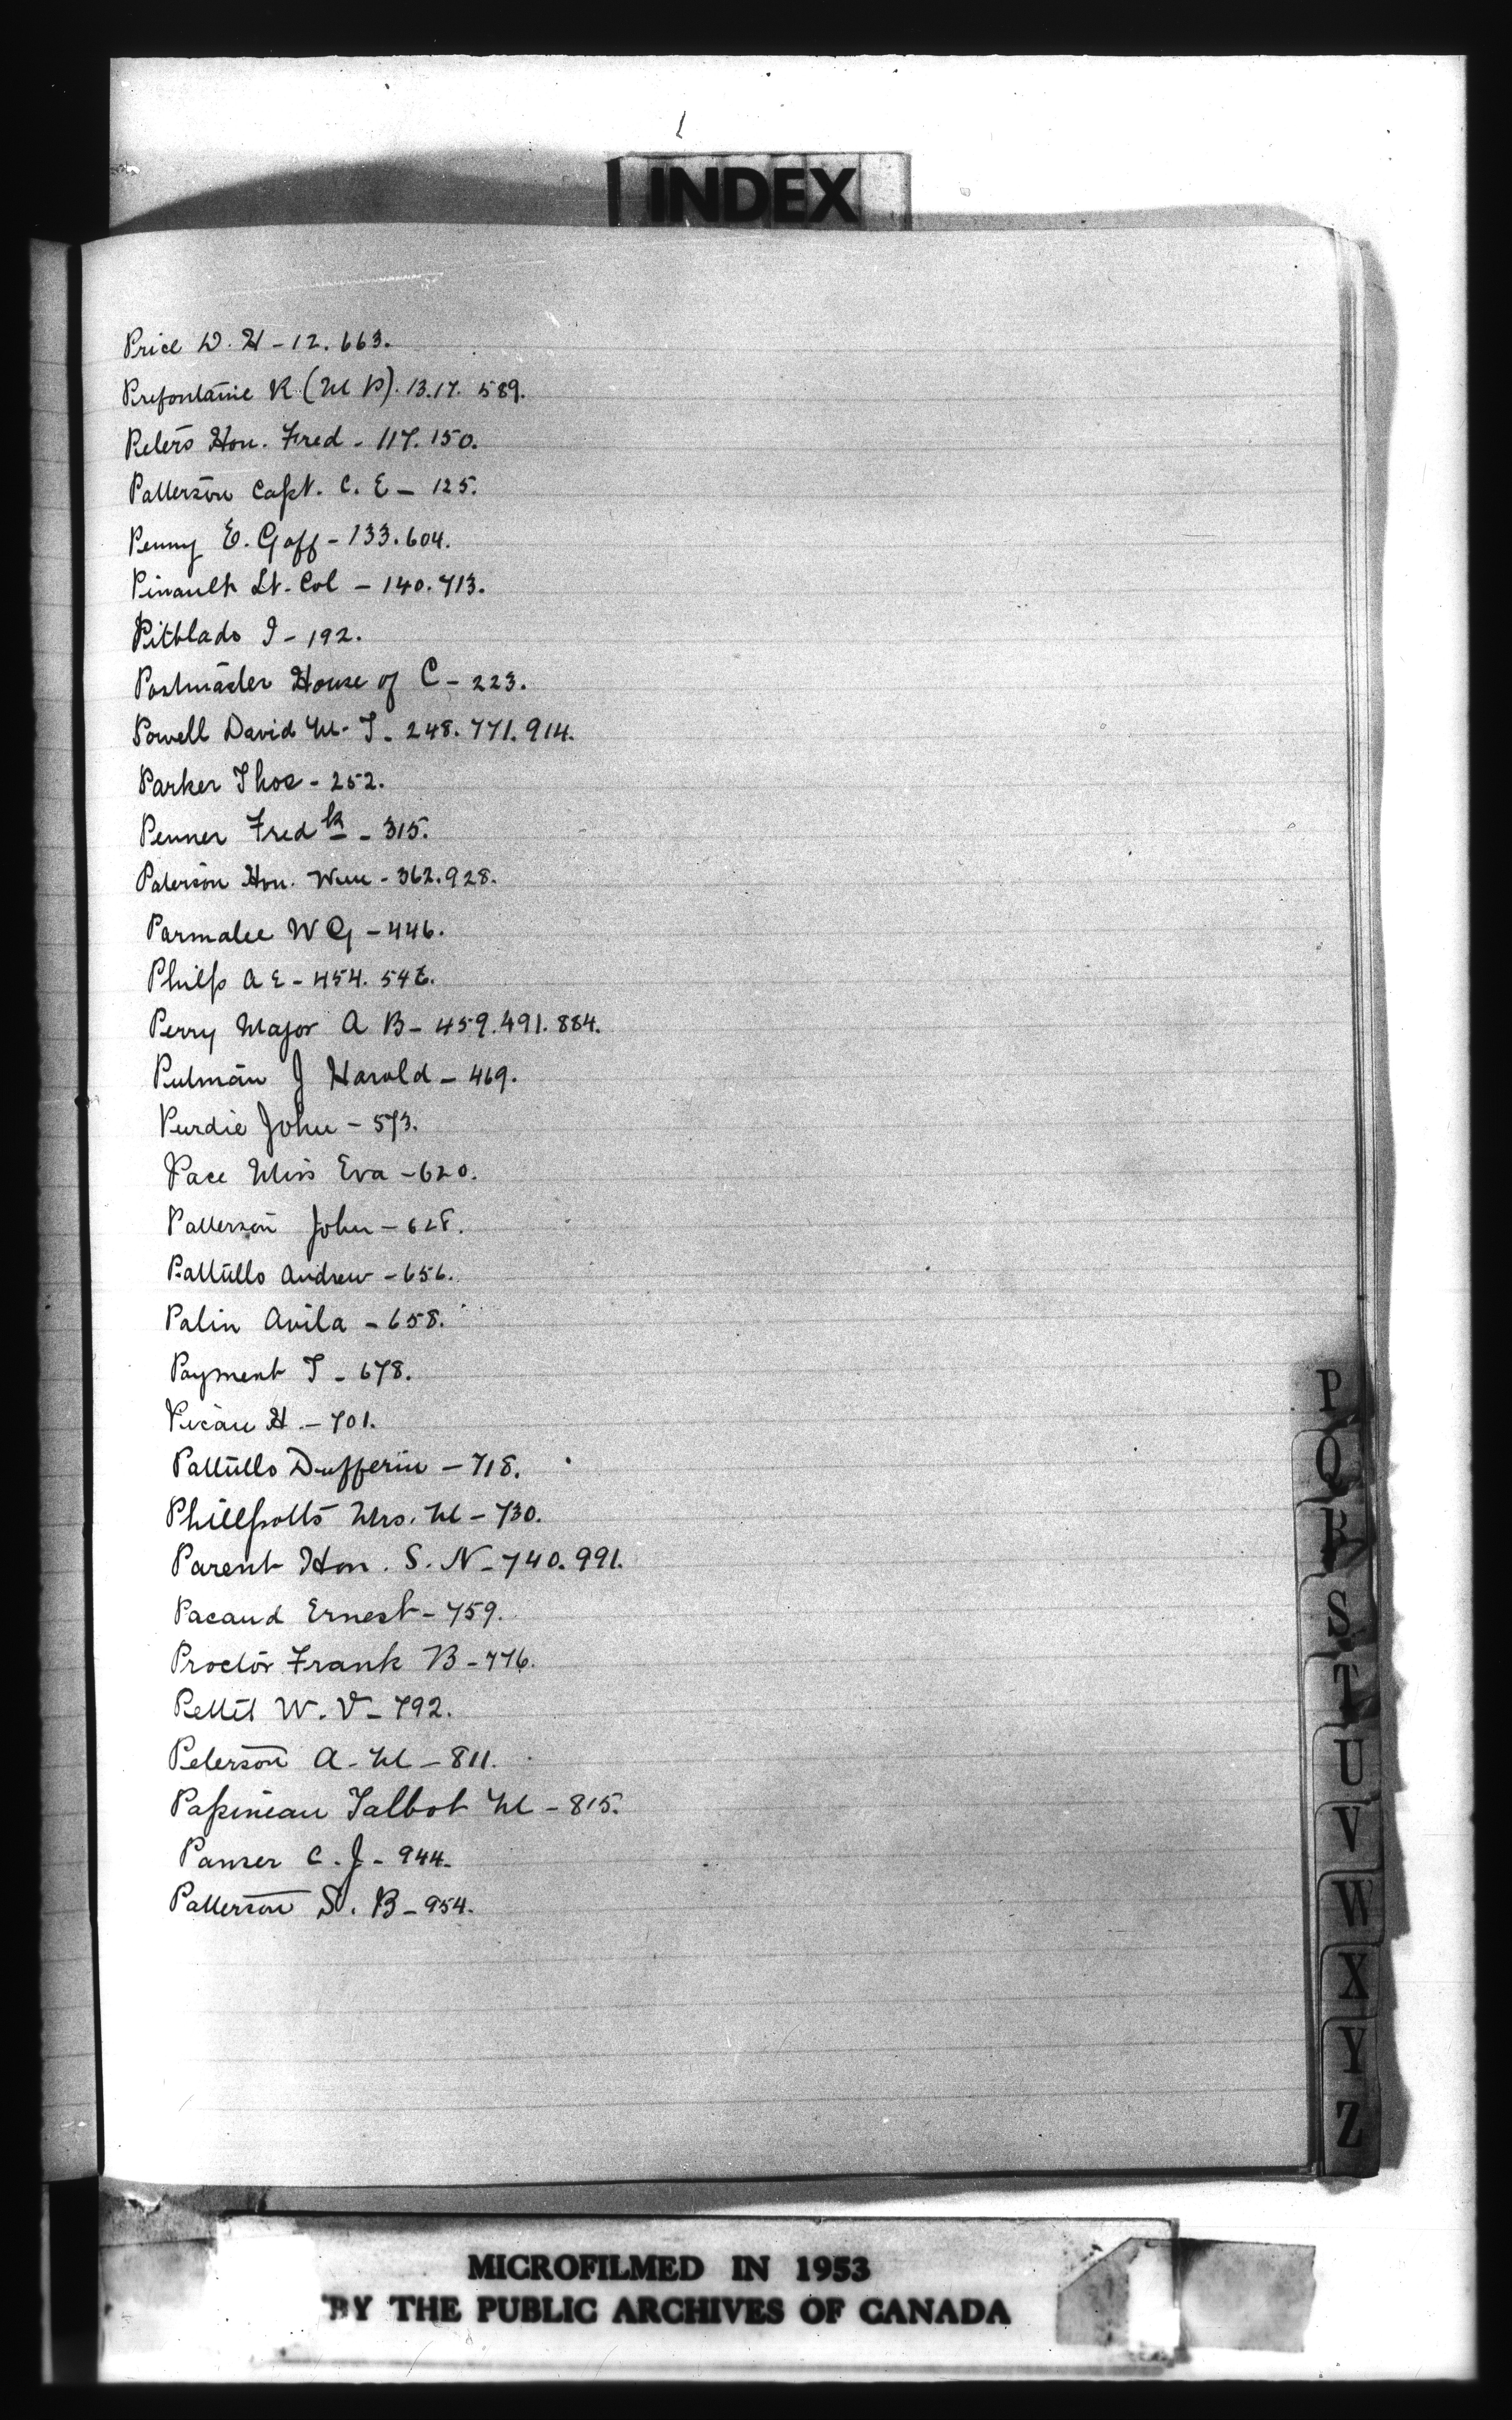 INDEX
Price W. H - 12. 663.
Prefontaine R (M P). 13.17. 589.
Peters Hon. Fred - 117. 150.
Patterson Capt. C. E - 125.
Penny E. Goff - 133. 604.
Pinault Lt. Col - 140. 713.
Pitblado I - 192.
Postmaster House of C - 223.
Powell David M. T. 248. 771. 914.
Parker Thos - 252.
Penner Fred k - 315.
Paterson Hon. Wm - 362. 928.
Parmalee W G - 446.
Philp A E - 454. 546.
Perry Major A B - 459. 491. 884.
Putman J Harold - 469.
Purdie John - 573.
Pace Miss Eva - 620.
Patterson John - 628.
Pattullo Andrew - 656.
Palin Avila - 658.
Payment T - 678.
Picau H - 701.
Pattullo Dufferin - 718.
Phillpotts Mrs. M - 730.
Parent Hon. S. N - 740. 991.
Pacaud Ernest - 759.
Proctor Frank B - 776.
Pettit W. V - 792.
Peterson A. M - 811.
Papineau Talbot M - 815.
Panser C. J - 944.
Patterson S. B - 954.
P
Q
R
S
T
U
V
W
X
Y
Z
MICROFILMED IN 1953
BY THE PUBLIC ARCHIVES OF CANADA